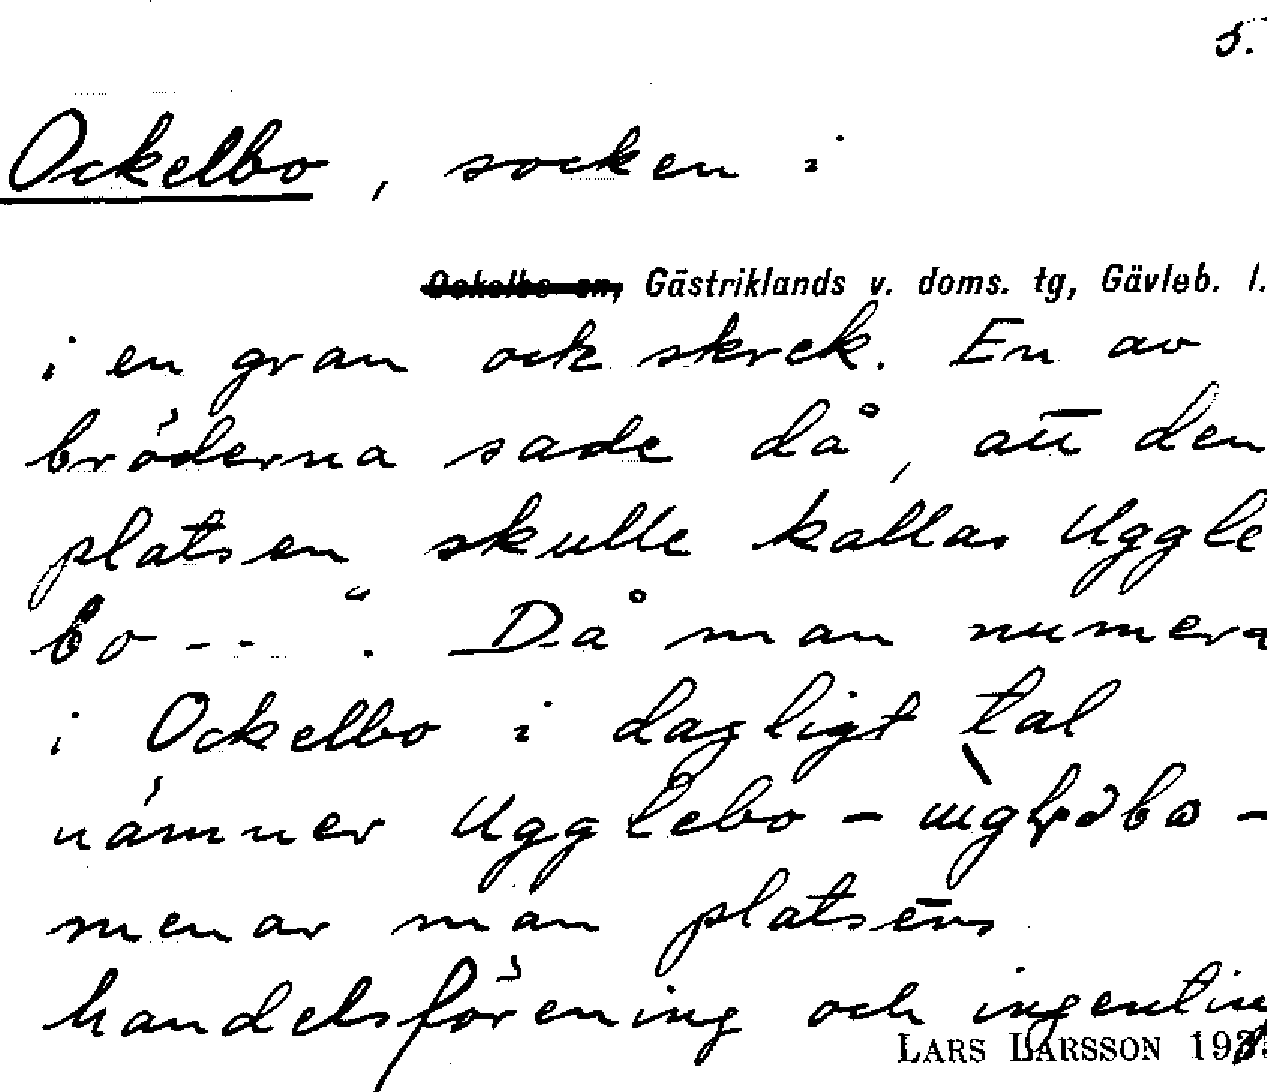 5.
Ockelbo, socken i
Ockelbo sn, Gästriklands v. doms. tg, Gävleb. l.
i en gran och skrek. En av
bröderna sade då, att den
platsen skulle kallas Uggle
bo --". Då man numera
i Ockelbo i dagligt tal
nämner Ugglebo -
menar man platsens
handelsförening och ingentin
LARS LARSSON 197